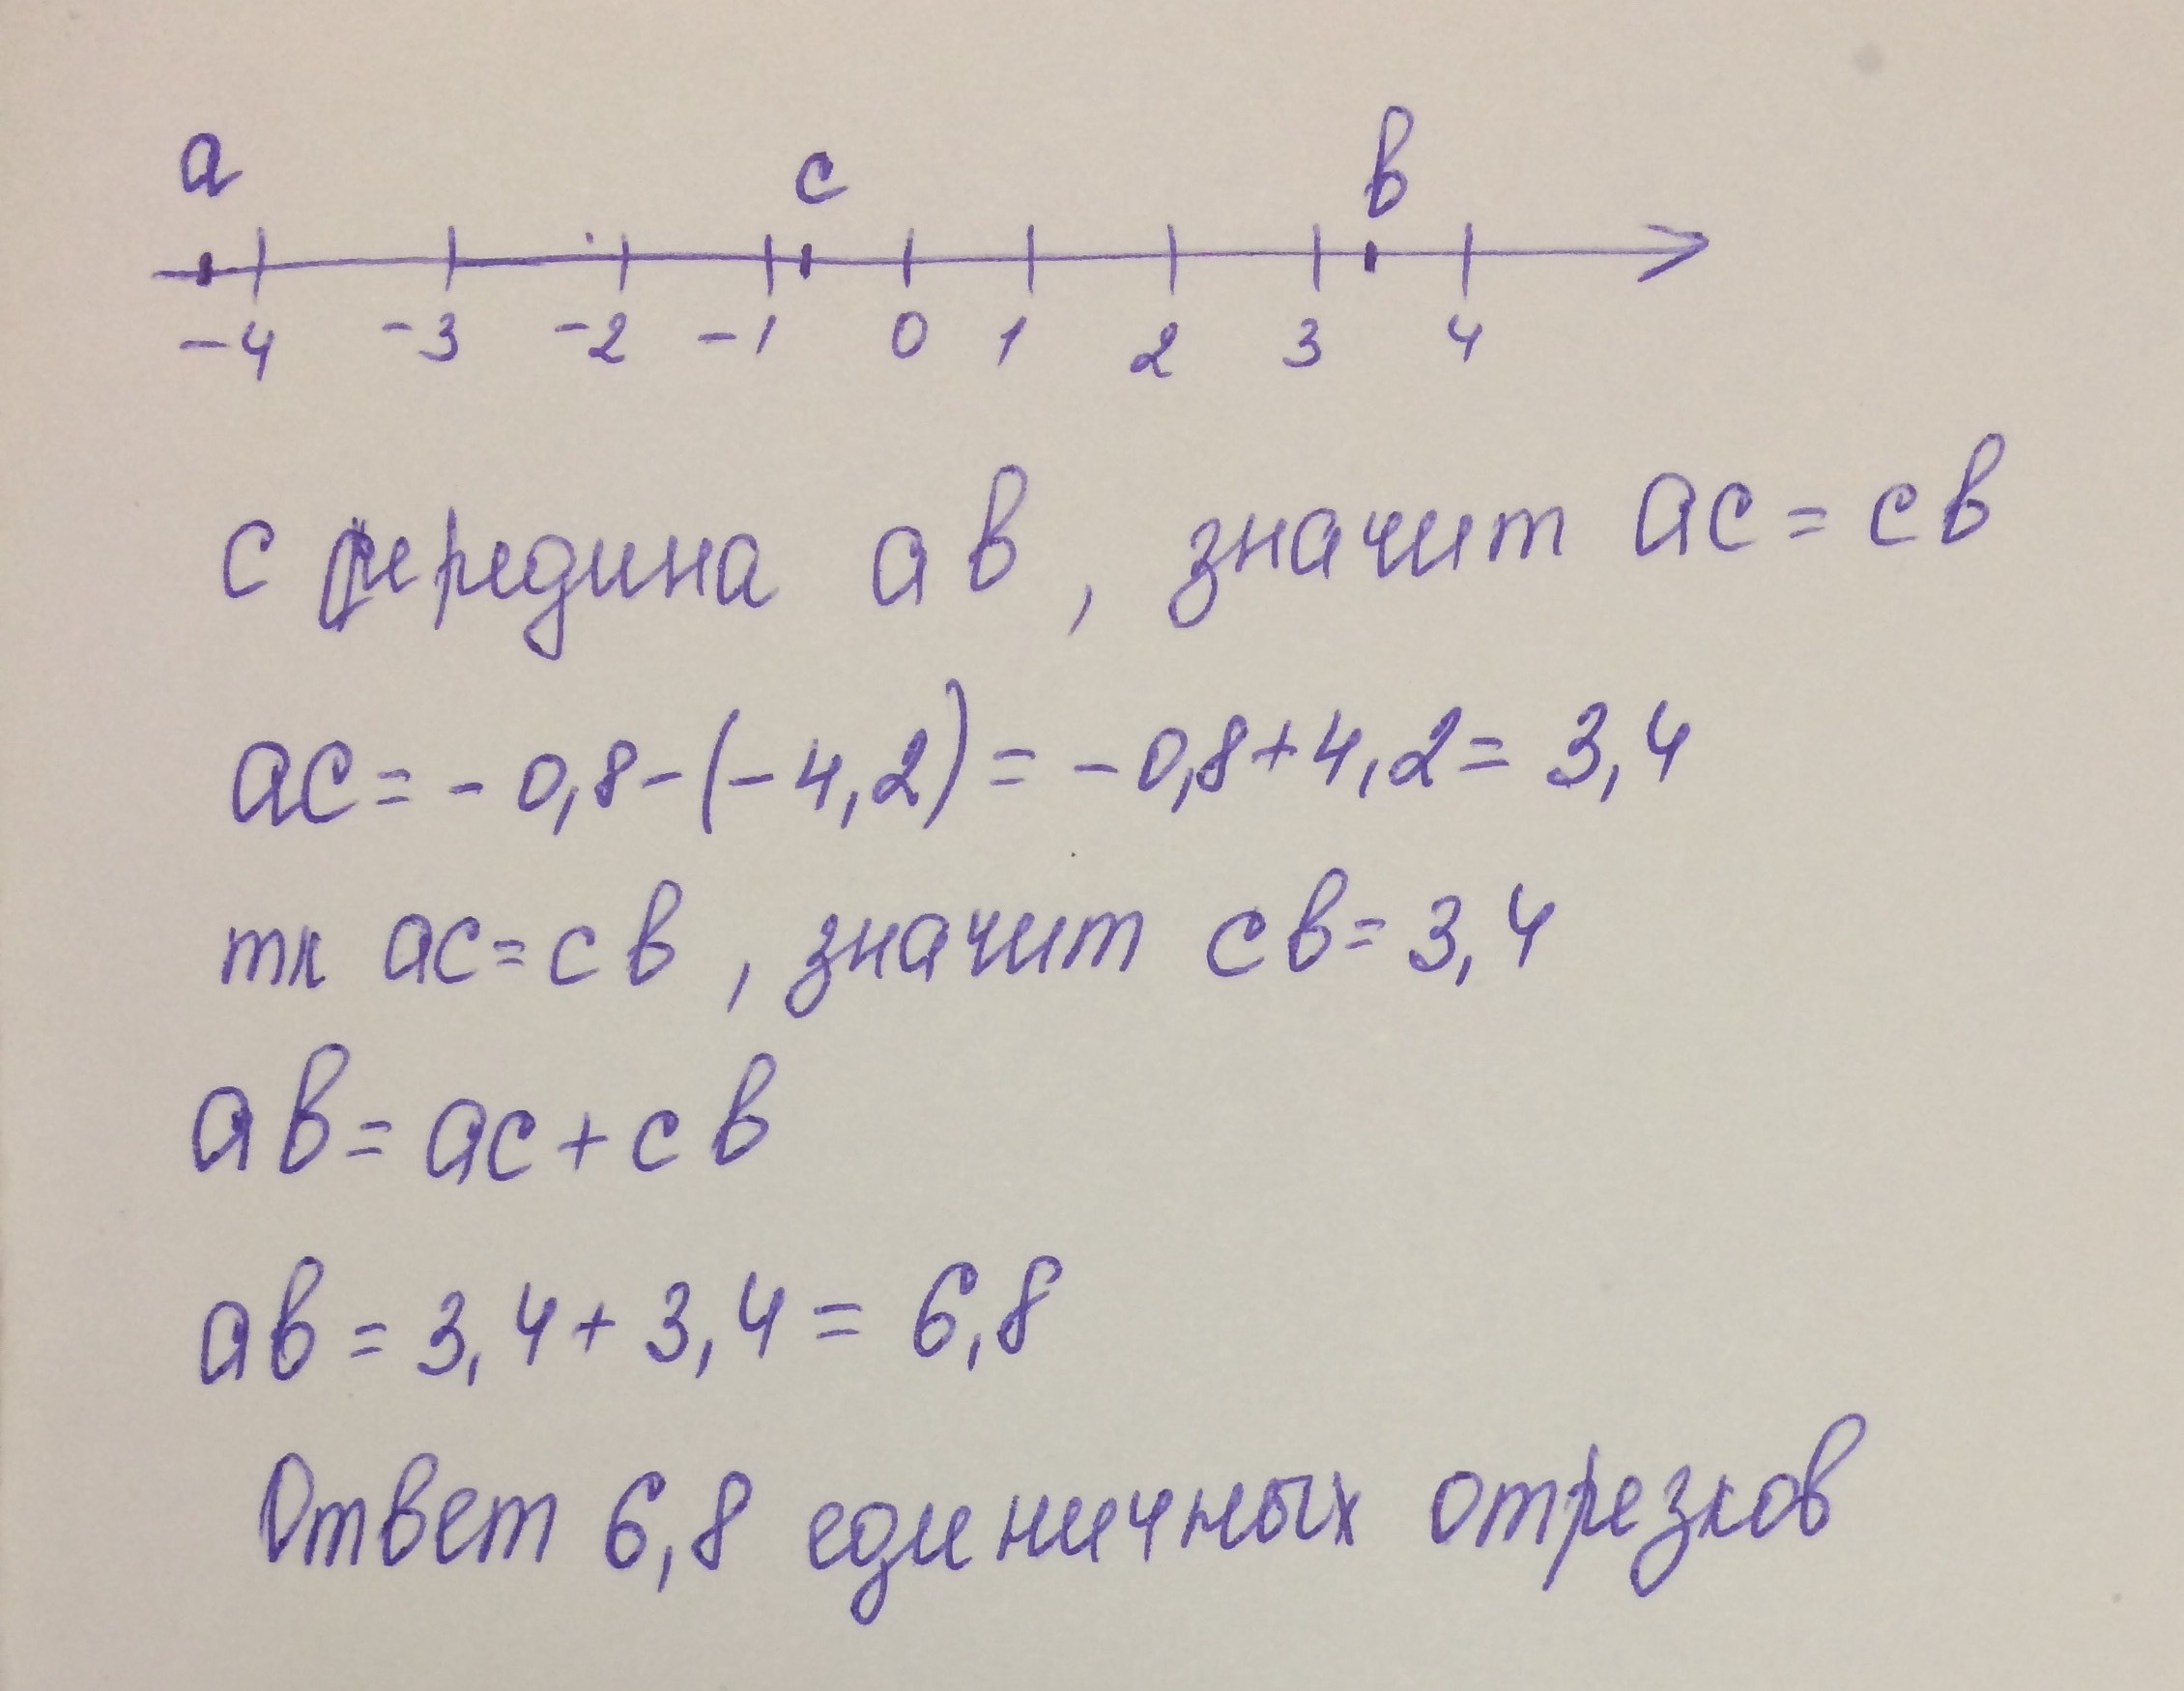 а с в
-4 -3 -2 -1 0 1 2 3 4
с середина ав, значит ас = св
ас = - 0,8 - (- 4,2) = - 0,8 + 4,2 = 3,4
тк ас = св, значит св = 3,4
ав = ас + св
ав = 3,4 + 3,4 = 6,8
Ответ 6,8 единичных отрезков